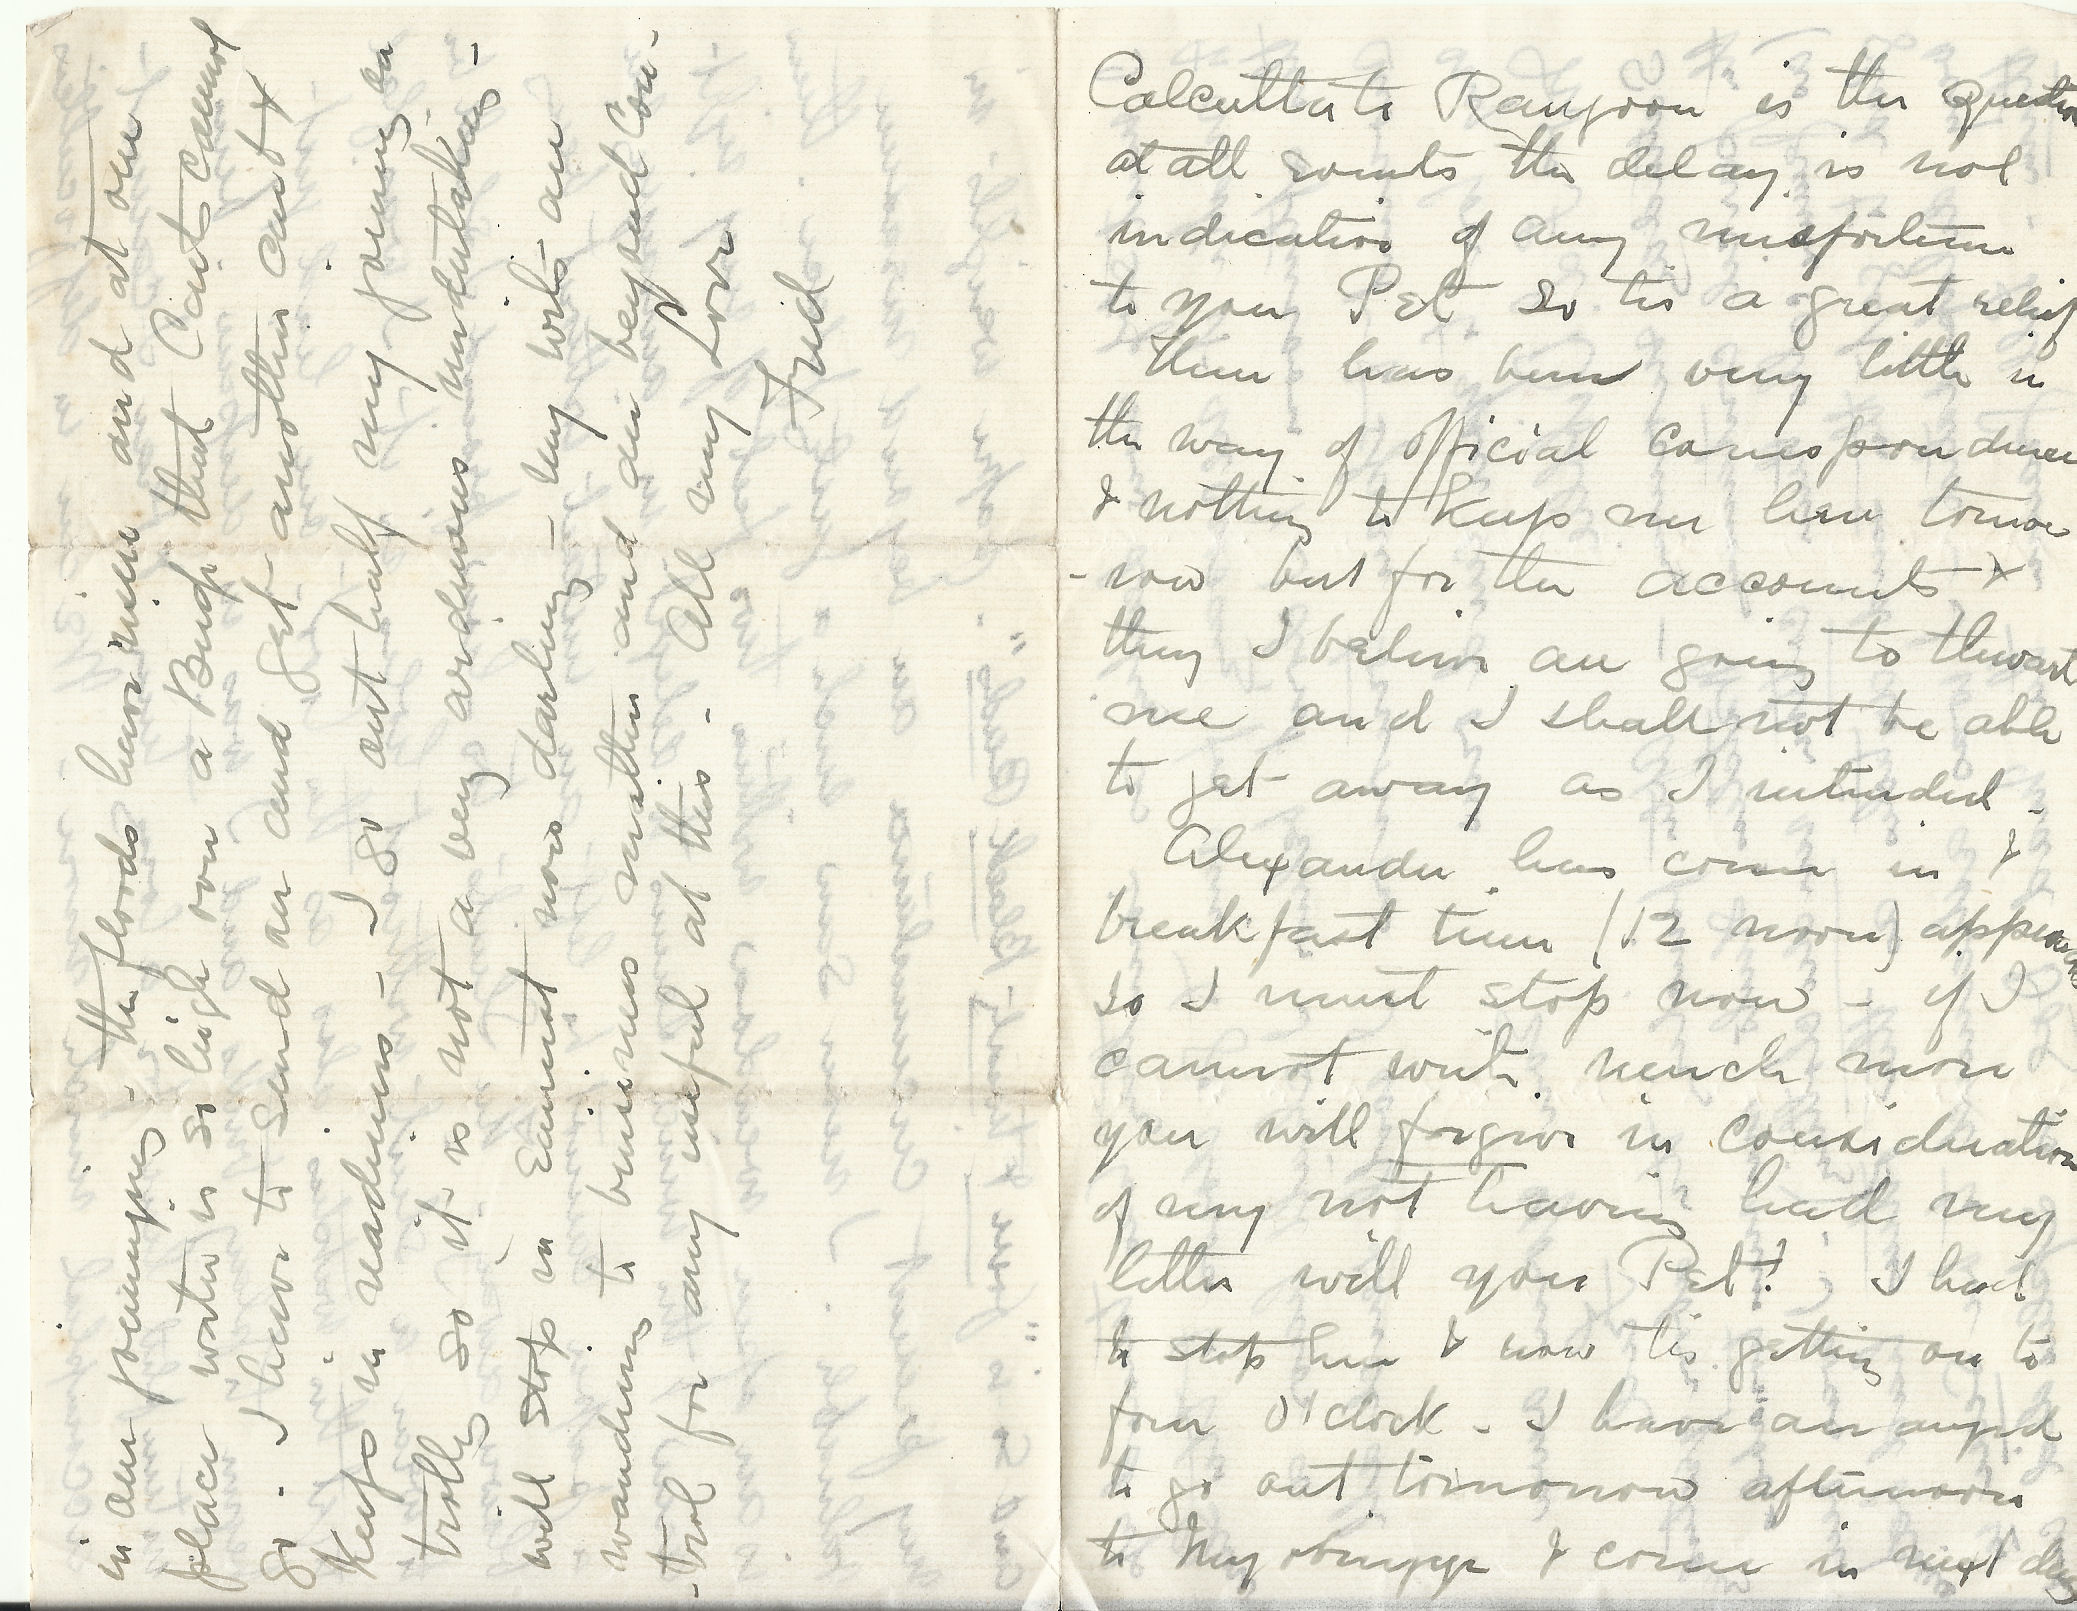 Calcutta to Rangoon is the question
at all events the delay is not
indication of any misfortune
to you Pet so tis a great relief
There has been very little in
the way of official correspondence
& nothing to keep me here tomor
-row but for the accounts &
they I believe are going to thwart
me and I shall not be able
to get away as I intended -
Alexander has come in &
breakfast time (12 noon) approaches
so I must stop now - if I
cannot write much more
you will forgive in consideration
of my not having had my
letter will you Pet? I had
to stop here & now tis getting on to
four O'clock - I have arranged
to go out tomorrow afternoon
to & come in next day
in our journeyings - the floods have risen and at one
place water is so high over a Bridge that Carts cannot
go - I have to send on and get another cart &
Keep in readiness - I go out half my journey on
trolly so it is not a very arduous undertaking -
will stop in Earnest now darling - my wits are
wandering to business matters and are beyond con-
-trol for any useful at this - All my Love
Fred